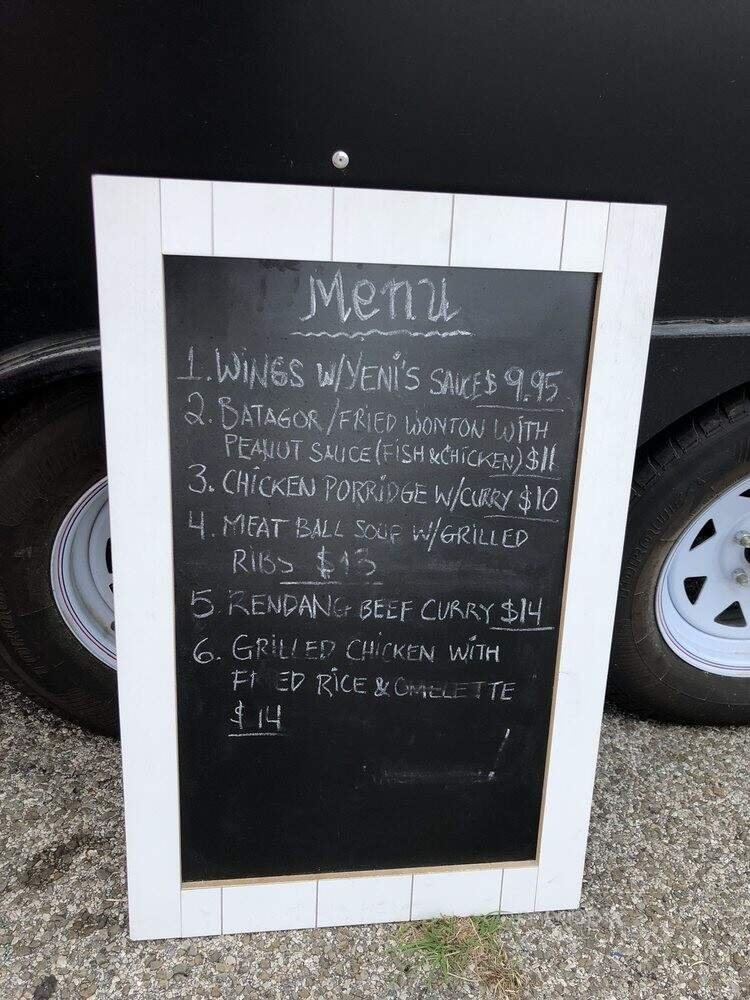 Menu
1. WINGS W/YENI'S SAUCE $ 9.95
2. BATAGOR/FRIED WONTON WITH
PEANUT SAUCE (FISH & CHICKEN) $11
3. CHICKEN PORRIDGE W/CURRY $10
4. MEAT BALL SOUP W/GRILLED
RIBS $13
5 RENDANG BEEF CURRY $14
6. GRILLED CHICKEN WITH
FRIED RICE & OMELETTE
$ 14